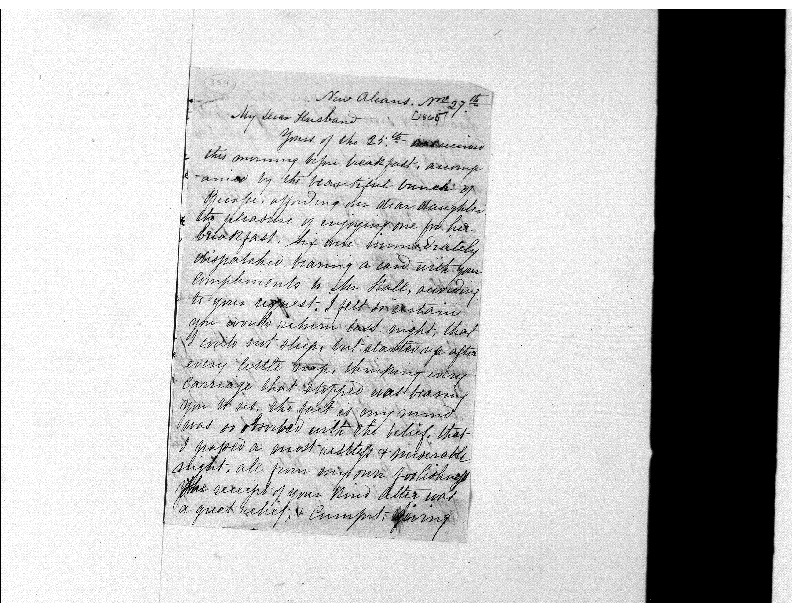 New Oleans. Nov 27th
[1848]
My dear Husband
Yours of the 25th received
this morning before breakfast, accomp
-anied by the beautiful bunch of
, affording our dear daughter
the pleasure of enjoying one for her
breakfast. Six were immediately
dispatched bearing a card with your
compliments to Mr Hall, according
to your request. I felt so certain
you would return last night, that
I could not sleep, but started up after
every little nap, thinking every
carriage that stopped was bearing
you to us. The fact is my mind
was so absorbed with the belief, that
I passed a most restless & miserable
night, all from my own foolishness
The receipt of your kind letter was
a great relief, & comfort, giving